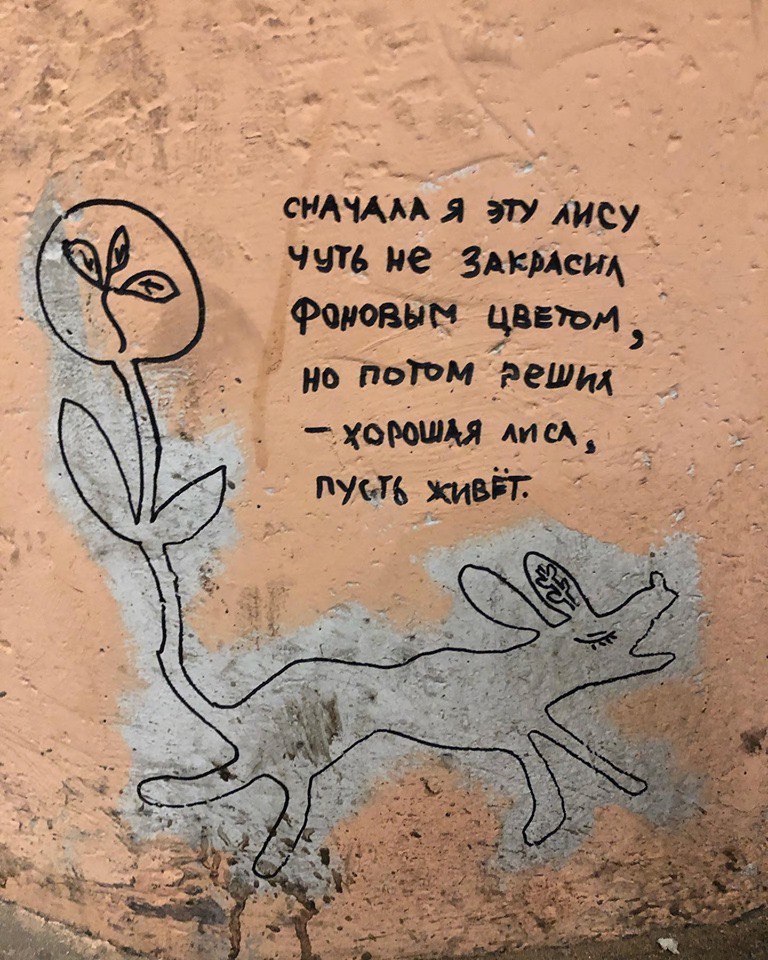 сначала я эту лису
чуть не закрасил
фоновым цветом,
но потом решил
– хорошая лиса,
пусть живёт.